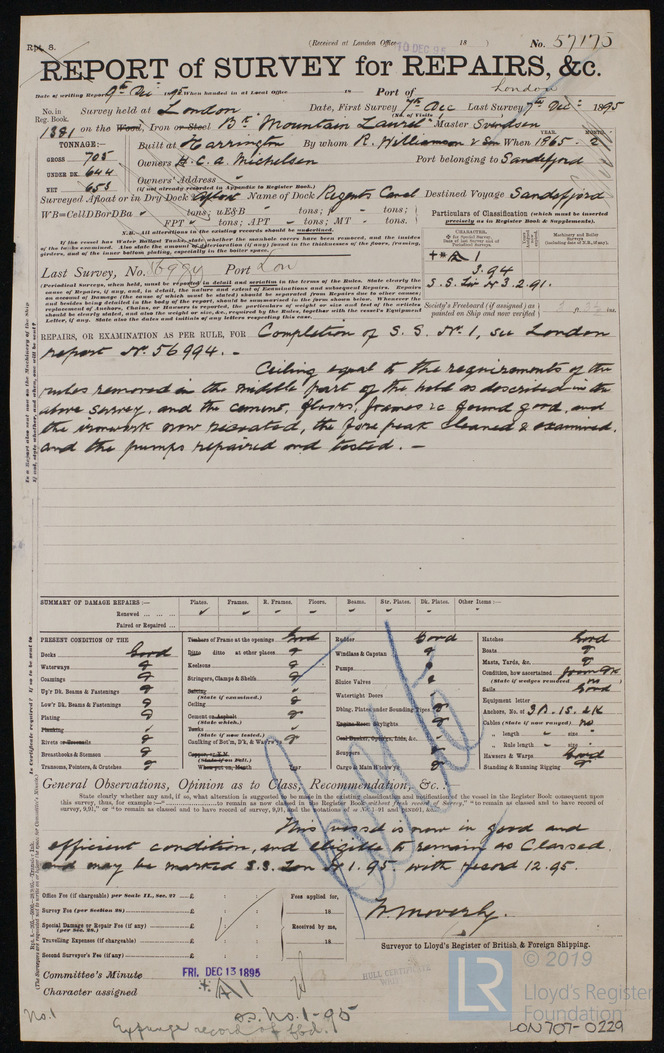 Rpt. 8.
(Received at London Office 10 DEC 95 18 )
No. 57175
REPORT of SURVEY for REPAIRS, &c.
Date of writing Report 9th Dec 1895 When handed in at Local Office 18 Port of London
No. in Reg. Book. Survey held at London Date, First Survey 7th Dec Last Survey 7th Dec: 1895
(No. of Visits )
1381 on the Wood, Iron or Steel Bk Mountain Laurel Master Svendsen
TONNAGE:— Built at Harrington By whom R. Williamson & Son When 1865. 2
YEAR. MONTH.
GROSS 705 Owners H. C. A. Michelsen Port belonging to Sandefjord
UNDER DK. 644 Owners' Address
NET 653 (if not already recorded in Appendix to Register Book.)
Surveyed Afloat or in Dry Dock Afloat Name of Dock Regents Canal Destined Voyage Sandefjord
WB=CellDBorDBa tons; uE&B tons; tons;
FPT tons; APT tons; MT tons.
Particulars of Classification (which must be inserted precisely as in Register Book & Supplements).
N.B. All alterations in the existing records should be underlined.
If the vessel has Water Ballast Tanks, state whether the manhole covers have been removed, and the insides of the tanks examined. Also state the amount of deterioration (if any) found in the thicknesses of the floors, framing, girders, and of the inner bottom plating, especially in the boiler space.
CHARACTER.
Machinery and Boiler Surveys (including date of N.B., if any).
+ A 1
3.94
S.S. Lon No 3 2.91.
Last Survey, No. Port Lon
Society's Freeboard (if assigned) as painted on Ship and now verified ft. ins.
REPAIRS, OR EXAMINATION AS PER RULE, FOR Completion of S.S. No. 1, see London
report No. 56994. —
Ceiling equal to the requirements of the
rules removed in the middle part of the hold as described in the
above survey, and the cement, floors, frames &c found good, and
the ironwork now recoated, the fore peak cleaned & examined,
and the pumps repaired and tested. —
SUMMARY OF DAMAGE REPAIRS:— Plates. Frames. R. Frames. Floors. Beams. Str. Plates. Dk. Plates. Other Items:—
Renewed ... ... ...
Faired or Repaired ...
PRESENT CONDITION OF THE
Decks Good
Waterways g
Coamings g
Up'r Dk. Beams & Fastenings g
Low'r Dk. Beams & Fastenings g
Plating g
Planking
Rivets or Treenails g
Breasthooks & Stemson g
Transoms, Pointers, & Crutches g
Timbers of Frame at the openings Good
Ditto ditto at other places g
Keelsons g
Stringers, Clamps & Shelfs g
Salting
(State if examined.)
Ceiling g
Cement or Asphalt g
(State which.)
(State if now tested.)
Caulking of Bot'm, D'k, & Waterw'ys g
(State if on Felt.)
When put on, Month Year
Rudder Good
Windlass & Capstan g
Pumps g
Sluice Valves
Watertight Doors
Dblng. Plates under Sounding Pipes
Engine Room Skylights
Coal Bunker, Openings, Lids, &c.
Scuppers g
Cargo & Main H'chw'ys g
Hatches Good
Boats g
Masts, Yards, &c. g
Condition, how ascertained from dk
(State if wedges removed no )
Sails Good
Equipment letter
Anchors, No. of 3B. 1S. 2K
Cables (State if now ranged) no
„ length size
„ Rule length size
Hawsers & Warps Good
Standing & Running Rigging g
General Observations, Opinion as to Class, Recommendation, &c.:—
This vessel is now in good and
efficient condition, and eligible to remain as Classed.
and may be marked S.S. Lon No 1.95. with record 12.95.
Office Fee (if chargeable) per Scale II., Sec. 27 £ : : Fees applied for,
Survey Fee (per Section 28) £ : : 18
Special Damage or Repair Fee (if any) (per Sec. 28.) £ : : Received by me,
Travelling Expenses (if chargeable) £ : : 18
Second Surveyor's Fee (if any) £ : :
Surveyor to Lloyd's Register of British & Foreign Shipping.
Committee's Minute FRI. DEC 13 1895
Character assigned + A 1
HULL CERTIFICATE
s.s. No. 1-95
No. 1
Expunge record of fbd.
LR
© 2019
Lloyd's Register
Foundation
LON707-0229